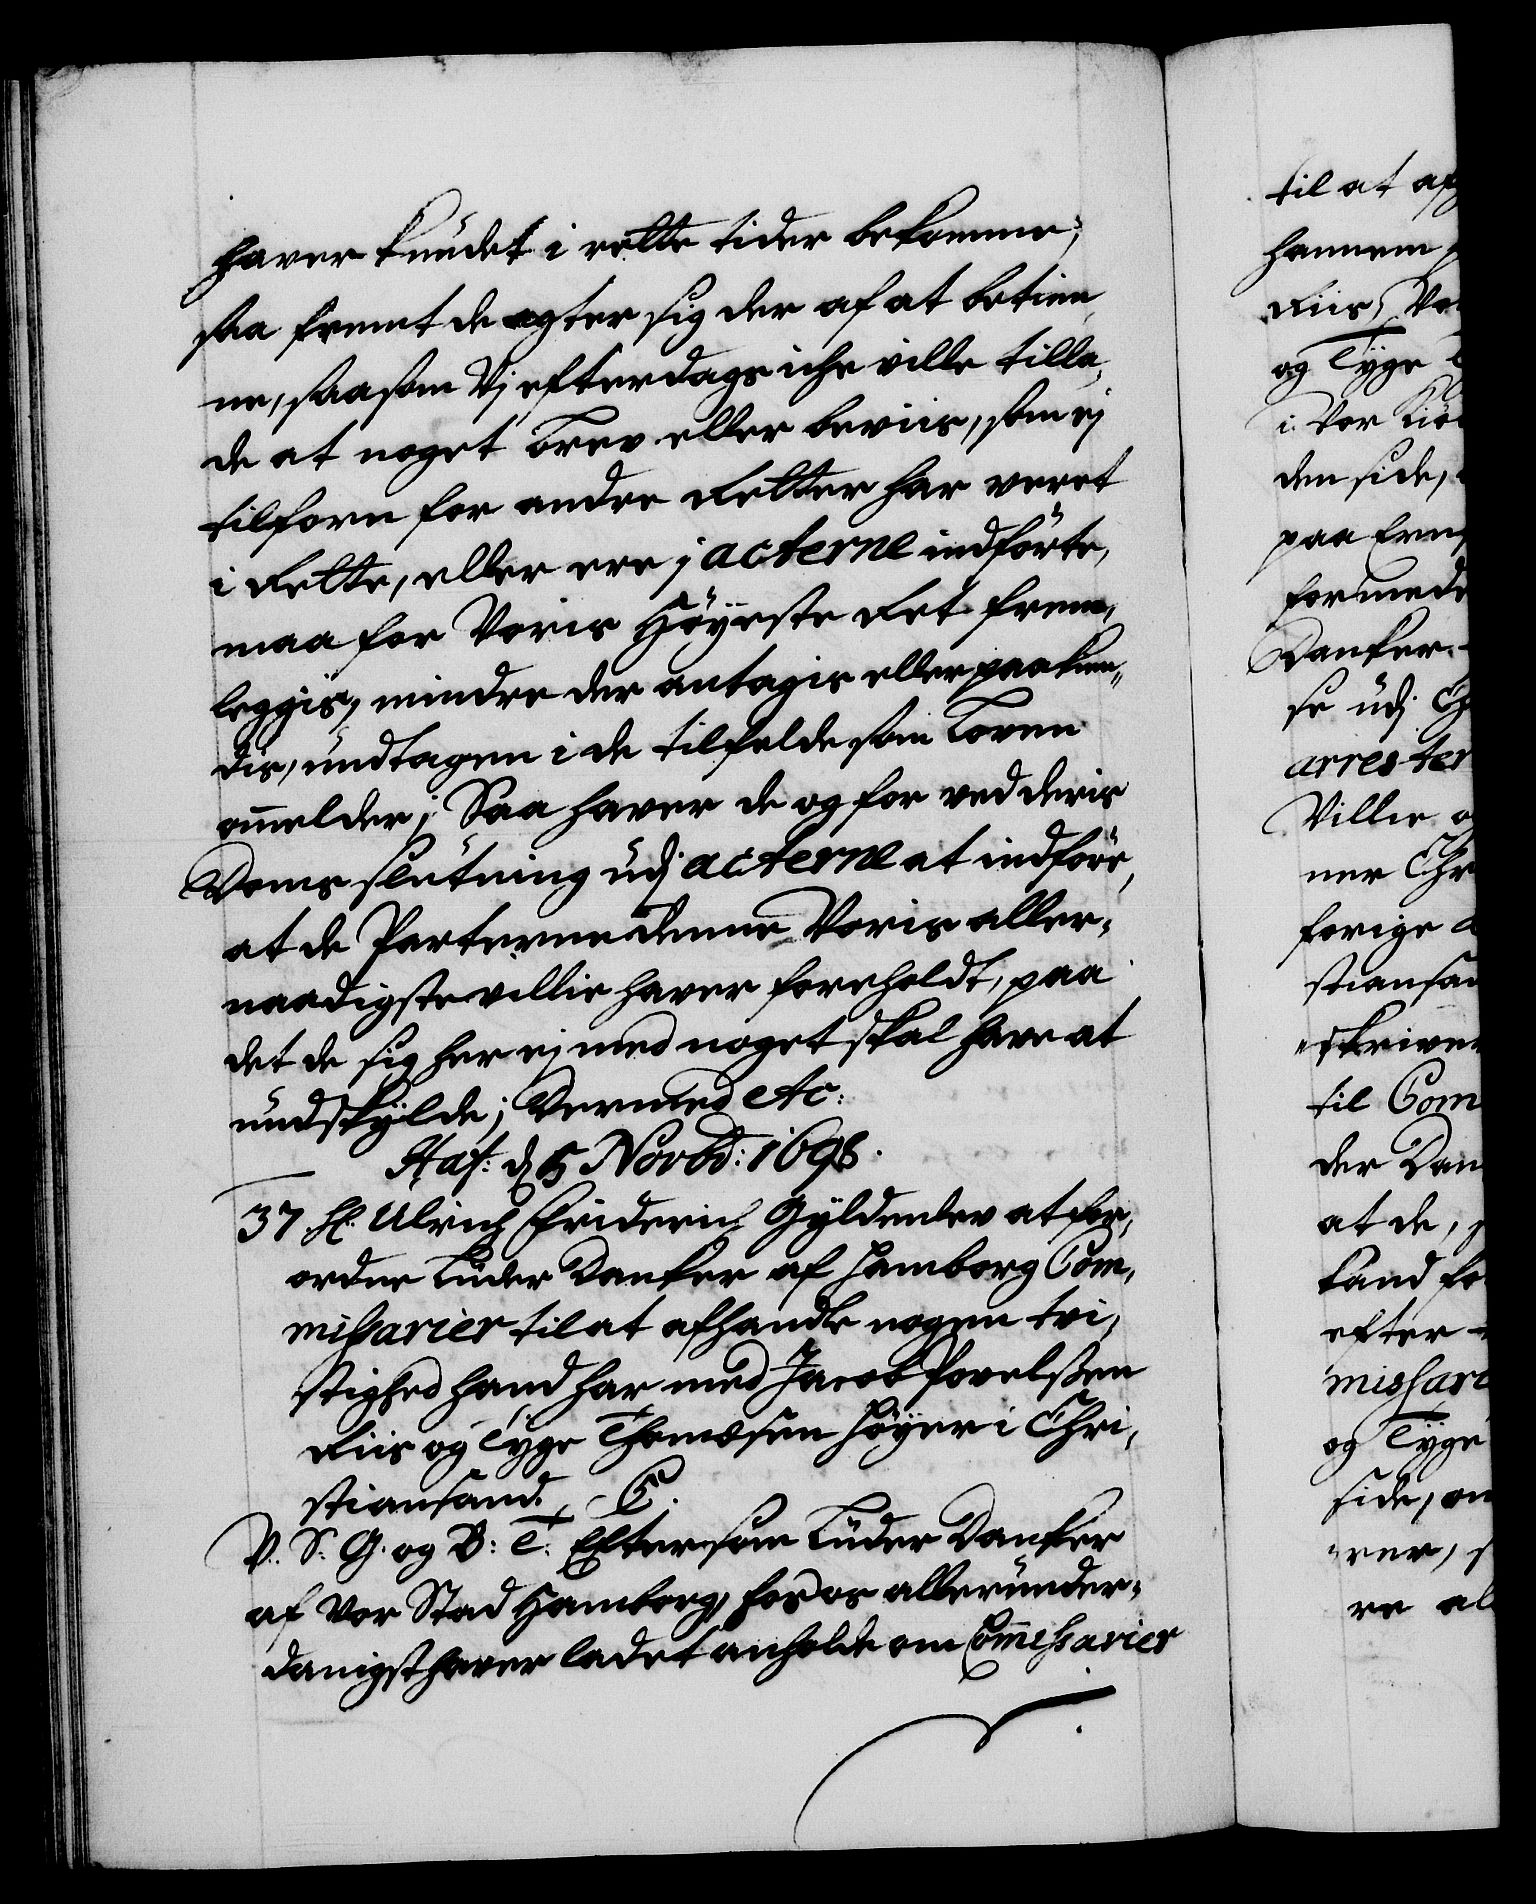 hafver kundet i rette tider bekomme,
saa fremt de agter sig der af at betien,
ne, saasom Vj efterdags iche ville tilla,
de at noget brev eller beviis, som ej
tilforn for andre Retter har veret
i Rette, eller ere j acterne indförte,
maa for Voris Höyeste Ret frem,
leggis, mindre der antagis eller paakien,
dis, undtagen i de tilfelde som Loven
ommelder; Saa haver de og for ved deris
Doms slutning udj acterne at indföre,
at de Parterne denne Voris aller,
naadigste villie haver foreholdt, paa
det de sig her ej med noget skal have at
undskylde; Dermed etc:
Haf: d 5 Novbr: 1698.
37 Hr: Ulrich Friderich Gyldenlev at for,
ordne Lüder Danker af Hamborg Com,
missarier til at afhandle nogen tvi,
stighed hand har med Jacob Povelssen
Riis og Tyge Thomæsen Höyer i Chri,
stiansand. C5.
V. S. G. og B: T: Eftersom Lüder Danker
af Vor Stad Hamborg, for os allerunder,
danigst haver ladet anholde om Commissarier
til at af
hannem
Riis, Vo
og Tyge
i Vor Kiö
den side,
paa
formede
Danker
se udj
arrester
Villie
ner Chr
forige
stiansan
skriver
til Com
der Dan
at de,
kand fo
efter
missari
og Tyge
side, om
rer, s
re al